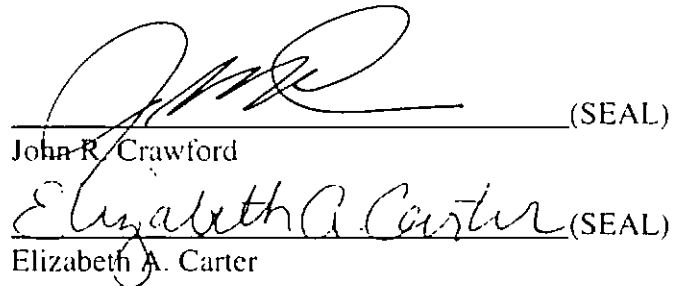 (SEAL)
John R. Crawford
Elizabeth A. Carter (SEAL)
Elizabeth A. Carter